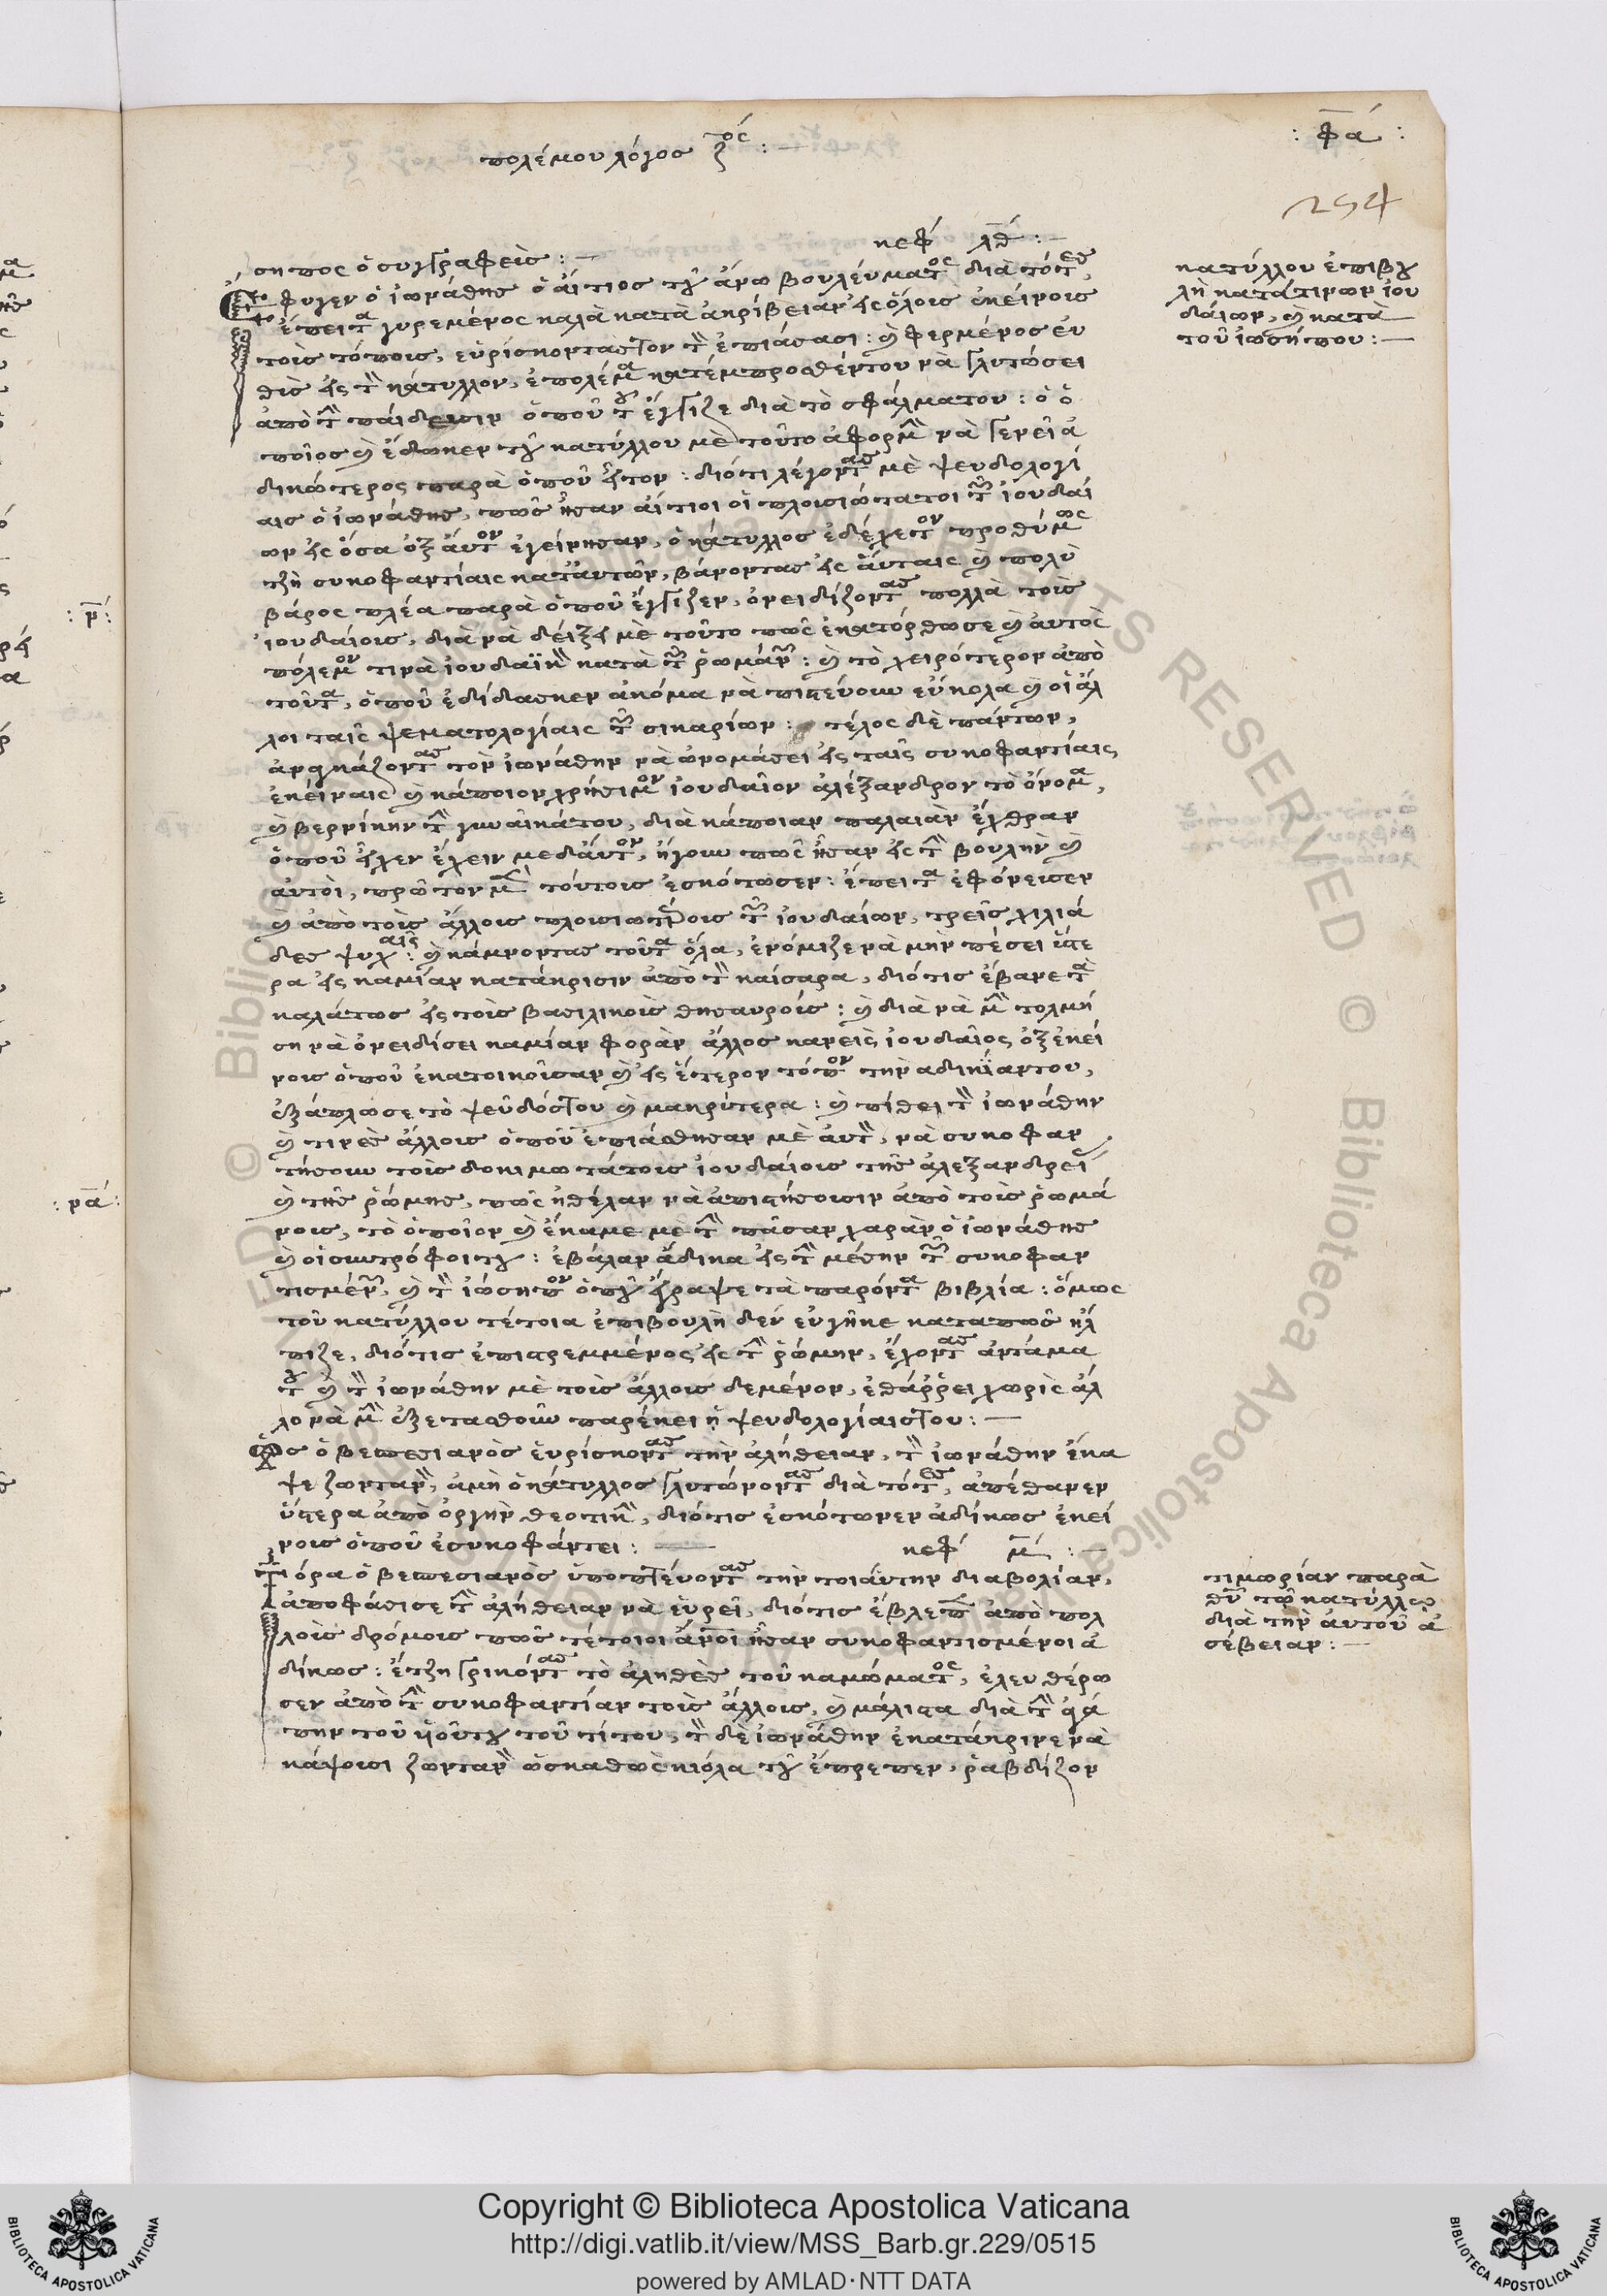 πολέμου λόγος ζ^ος :—
: φα :
254
κεφ λθ :—
σηπος ὁ συγγραφεὺς :—
Ἔφυγεν ὁ ἰωνάθης ὁ αἴτιος τοῦ ἄνω βουλεύματος διὰ τότες,
ἔπειτα γυρεμένος καλὰ κατὰ ἀκρίβειαν εἰς ὅλοις ἐκείνοις
τοῖς τόποις, εὑρίσκοντάς τον τὸν ἐπιάσασι : καὶ φερμένος εὐ
θὶς εἰς τὸν κάτυλλον, ἐπολέμα κατέμπροσθέντου νὰ γλυτώσει
ἀπὸ τὴν παίδευσιν ὁποῦ τοῦ ἔγγιζε διὰ τὸ σφάλματου : ὁ ὁ
ποῖος καὶ ἔδωκεν τοῦ κατύλλου μὲ τοῦτο ἀφορμὴν νὰ γενεῖ ἀ
δικώτερος παρὰ ὁποῦ ἦτον : διότι λέγοντας μὲ ψευδολογί
αις ὁ ἰωνάθης, πῶς ἦσαν αἴτιοι οἱ πλουσιώτατοι τῶν ἰουδαί
ων εἰς ὅσα ὀξ αὐτὸν ἐγείρησαν, ὁ κάτυλλος ἐδέχετον προθύμως
τζὴ συκοφαντίαις κατ' αὐτῶν, βάνοντας εἰς αὐταις καὶ πολὺ
βάρος πλέα παρὰ ὁποῦ ἔγγιζεν, ὀνειδίζοντας πολλὰ τοῖς
ἰουδαίοις, διὰ νὰ δείξει μὲ τοῦτο πῶς ἐκατόρθωσε καὶ αὐτὸς
πόλεμον τινὰ ἰουδαϊκὸν κατὰ τῶν ῥωμάνων : καὶ τὸ χειρότερον ἀπὸ
τοῦτα, ὁποῦ ἐδίδασκεν ἀκόμα νὰ πιστεύουν εὔκολα καὶ οἱ ἄλ
λοι ταῖς ψεματολογίαις τῶν σικαρίων : τέλος δὲ πάντων,
ἀναγκάζοντας τὸν ἰωνάθην νὰ ὀνομάσει εἰς ταῖς συκοφαντίαις
ἐκείναις καὶ κάποιον χρήσιμον ἰουδαῖον ἀλέξανδρον τὸ ὄνομα,
καὶ βερνίκην τὴν γυναῖκάτου, διὰ κάποιαν παλαιὰν ἔχθραν
ὁποῦ εἶχεν ἔχειν μεδαύτον, ἤγουν πῶς ἦσαν εἰς τὴν βουλὴν καὶ
αὐτοὶ, πρῶτον μὲν τούτοις ἐσκότωσεν : ἔπειτα ἐφόνευσεν
καὶ ἀπὸ τοῖς ἄλλοις πλουσιωτέροις τῶν ἰουδαίων, τρεῖς χιλιά
δες ψυχαῖς : καὶ κάμνοντας τοῦτα ὅλα, ἐνόμιζε νὰ μὴν πέσει ὕστε
ρα εἰς καμίαν κατάκρισιν ἀπὸ τὸν καίσαρα, διότις ἔβανε τὰ
καλάτως εἰς τοῖς βασιλικοῖς θησαυροῖς : καὶ διὰ νὰ μὴν τολμή
ση νὰ ὀνειδίσει καμίαν φορὰν ἄλλος κανεὶς ἰουδαῖος ὀξ ἐκεί
νοις ὁποῦ ἐκατοικοῦσαν καὶ εἰς ἕτερον τόπον τὴν αδικίαντου,
ἐξάπλωσε τὸ ψεῦδόςτου καὶ μακρύτερα : καὶ πίθει τὸν ἰωνάθην
καὶ τινὲς ἄλλοις ὁποῦ ἐπιάσθησαν μὲ αὐτὸν, νὰ συκοφαν
τήσουν τοῖς δοκιμωτάτοις ἰουδαίοις τῆς ἀλεξανδρεί
καὶ τῆς ῥώμης, πῶς ἠθέλαν νὰ ἀπιστήσουσιν ἀπὸ τοῖς ῥωμά
νοις, τὸ ὁποῖον καὶ ἔκαμε μὲ τὴν πᾶσαν χαρὰν ὁ ἰωνάθης
καὶ οἱ συντρόφοιτου : ἐβάλαν ἄδικα εἰς τὴν μέσην τῶν συκοφαν
τισμένων, καὶ τὸν ἰώσηπον ὁποῦ ἔγραψε τὰ παρόντα βιβλία : ὅμως
τοῦ κατύλλου τέτοια ἐπιβουλὴ δέν εὐγῆκε καταπῶς ἤλ
πιζε, διότις ἐπιστρεμμένος εἰς τὴν ῥώμην, ἔχοντας ἀντάμα
του καὶ τὸν ἰωνάθην μὲ τοῖς ἄλλοις δεμένον, ἐθάῤῥει χωρὶς ἄλ
λο νὰ μὴν ἐξετασθοῦν παρέκει ἡ ψευδολογίαιςτου :—
Ὡς ὁ βεσπεσιανὸς εὑρίσκοντας τὴν ἀλήθειαν, τὸν ἰωνάθην ἔκα
ψε ζωντανὸν, ἀμὴ ὁ κάτυλλος γλυτώνοντας διὰ τότες, ἀπέθανεν
ὕστερα ἀπὸ ὀργὴν θεοτικὴν, διότις ἐσκότωνεν ἀδίκως ἐκεί
νοις ὁποῦ ἐσυκοφάντει :—
κεφ μ :—
Τώρα ὁ βεσπεσιανὸς ὑποπτεύοντας τὴν τοιαύτην διαβολίαν,
ἀποφάσισε τὴν ἀλήθειαν νὰ εὑρεῖ, διότις ἔβλεπεν ἀπὸ πολ
λοῖς δρόμοις πῶς τέτοιοι ἄνοι ἦσαν συκοφαντισμένοι ἀ
δίκως : ἔτζη γρικόντας τὸ ἀληθὲς τοῦ καμώματος, ἐλευθέρω
σεν ἀπὸ τὴν συκοφαντίαν τοῖς ἄλλοις, καὶ μάλιστα διὰ τὴν ἀγά
πην τοῦ ὑιοῦτου τοῦ τίτου, τὸν δὲ ἰωνάθην ἐκατάκρινε νὰ
κάψουσι ζωντανὸν ὡσκαθὼς κιόλα τοῦ ἔπρεπεν, ῥαβδίζον
κατύλλου ἐπιβου
λὴ κατὰ τινων ἰου
δαίων, καὶ κατὰ
τοῦ ἰωσήπου :—
τιμωρίαν παρὰ
θῦ τῷ κατύλλῳ
διὰ τὴν αὐτοῦ ἀ
σέβειαν :—
: ρ :
: ρα :
Copyright © Biblioteca Apostolica Vaticana
http://digi.vatlib.it/view/MSS_Barb.gr.229/0515
powered by AMLAD·NTT DATA
BIBLIOTECA APOSTOLICA VATICANA
BIBLIOTECA APOSTOLICA VATICANA